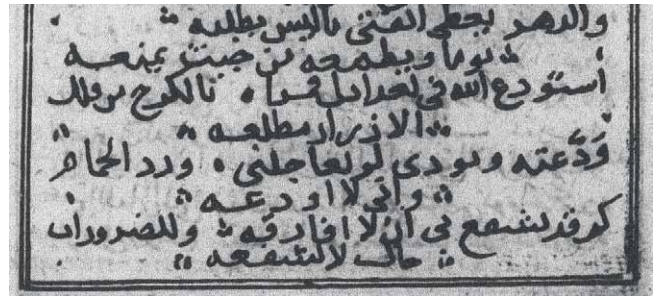 والدهر يعطي الفتى ماليس يطلبه
يوما ويطمعه من حيث يمنعه
استودع الله في بغداد لي قمرا بالكرخ من فلك
الازرار مطلعه
وَدَّعته وبودي لو يعاجلني ورد الحمام
واني لا اودعه
كم قد تشفع بي ان لا افارقه وللضرورات
حال لا تشفعه